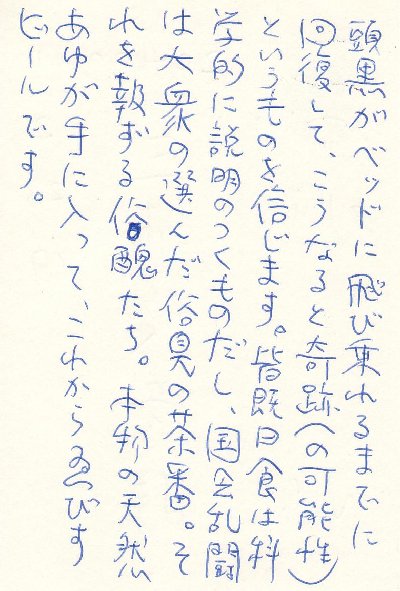 頭黒がベッドに飛び乗れるまでに
回復して、こうなると奇跡(の可能性)
というものを信じます。皆既日食は科
学的に説明のつくものだし、国会乱闘
は大衆の選んだ俗具の茶番。そ
れを報ずる俗醜たち。本物の天然
あゆが手に入って、これからゑびす
ビールです。